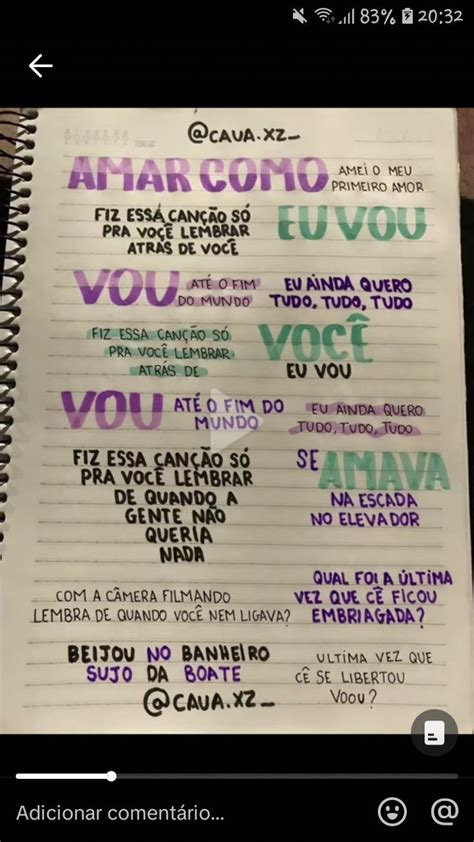 83% 20:32
@CAUA.XZ_
AMAR COMO AMEI O MEU
PRIMEIRO AMOR
FIZ ESSA CANÇÃO SÓ
PRA VOCÊ LEMBRAR
ATRÁS DE VOCÊ
EU VOU
VOU ATÉ O FIM
DO MUNDO
EU AINDA QUERO
TUDO, TUDO, TUDO
FIZ ESSA CANÇÃO SÓ
PRA VOCÊ LEMBRAR
ATRÁS DE
VOCÊ
EU VOU
VOU ATÉ O FIM DO
MUNDO
EU AINDA QUERO
TUDO, TUDO, TUDO
FIZ ESSA CANÇÃO SÓ
PRA VOCÊ LEMBRAR
DE QUANDO A
GENTE NÃO
QUERIA
NADA
SE AMAVA
NA ESCADA
NO ELEVADOR
COM A CÂMERA FILMANDO
LEMBRA DE QUANDO VOCÊ NEM LIGAVA?
QUAL FOI A ÚLTIMA
VEZ QUE CÊ FICOU
EMBRIAGADA?
BEIJOU NO BANHEIRO
SUJO DA BOATE
ULTIMA VEZ QUE
CÊ SE LIBERTOU
VOOU?
@CAUA.XZ_
Adicionar comentário...